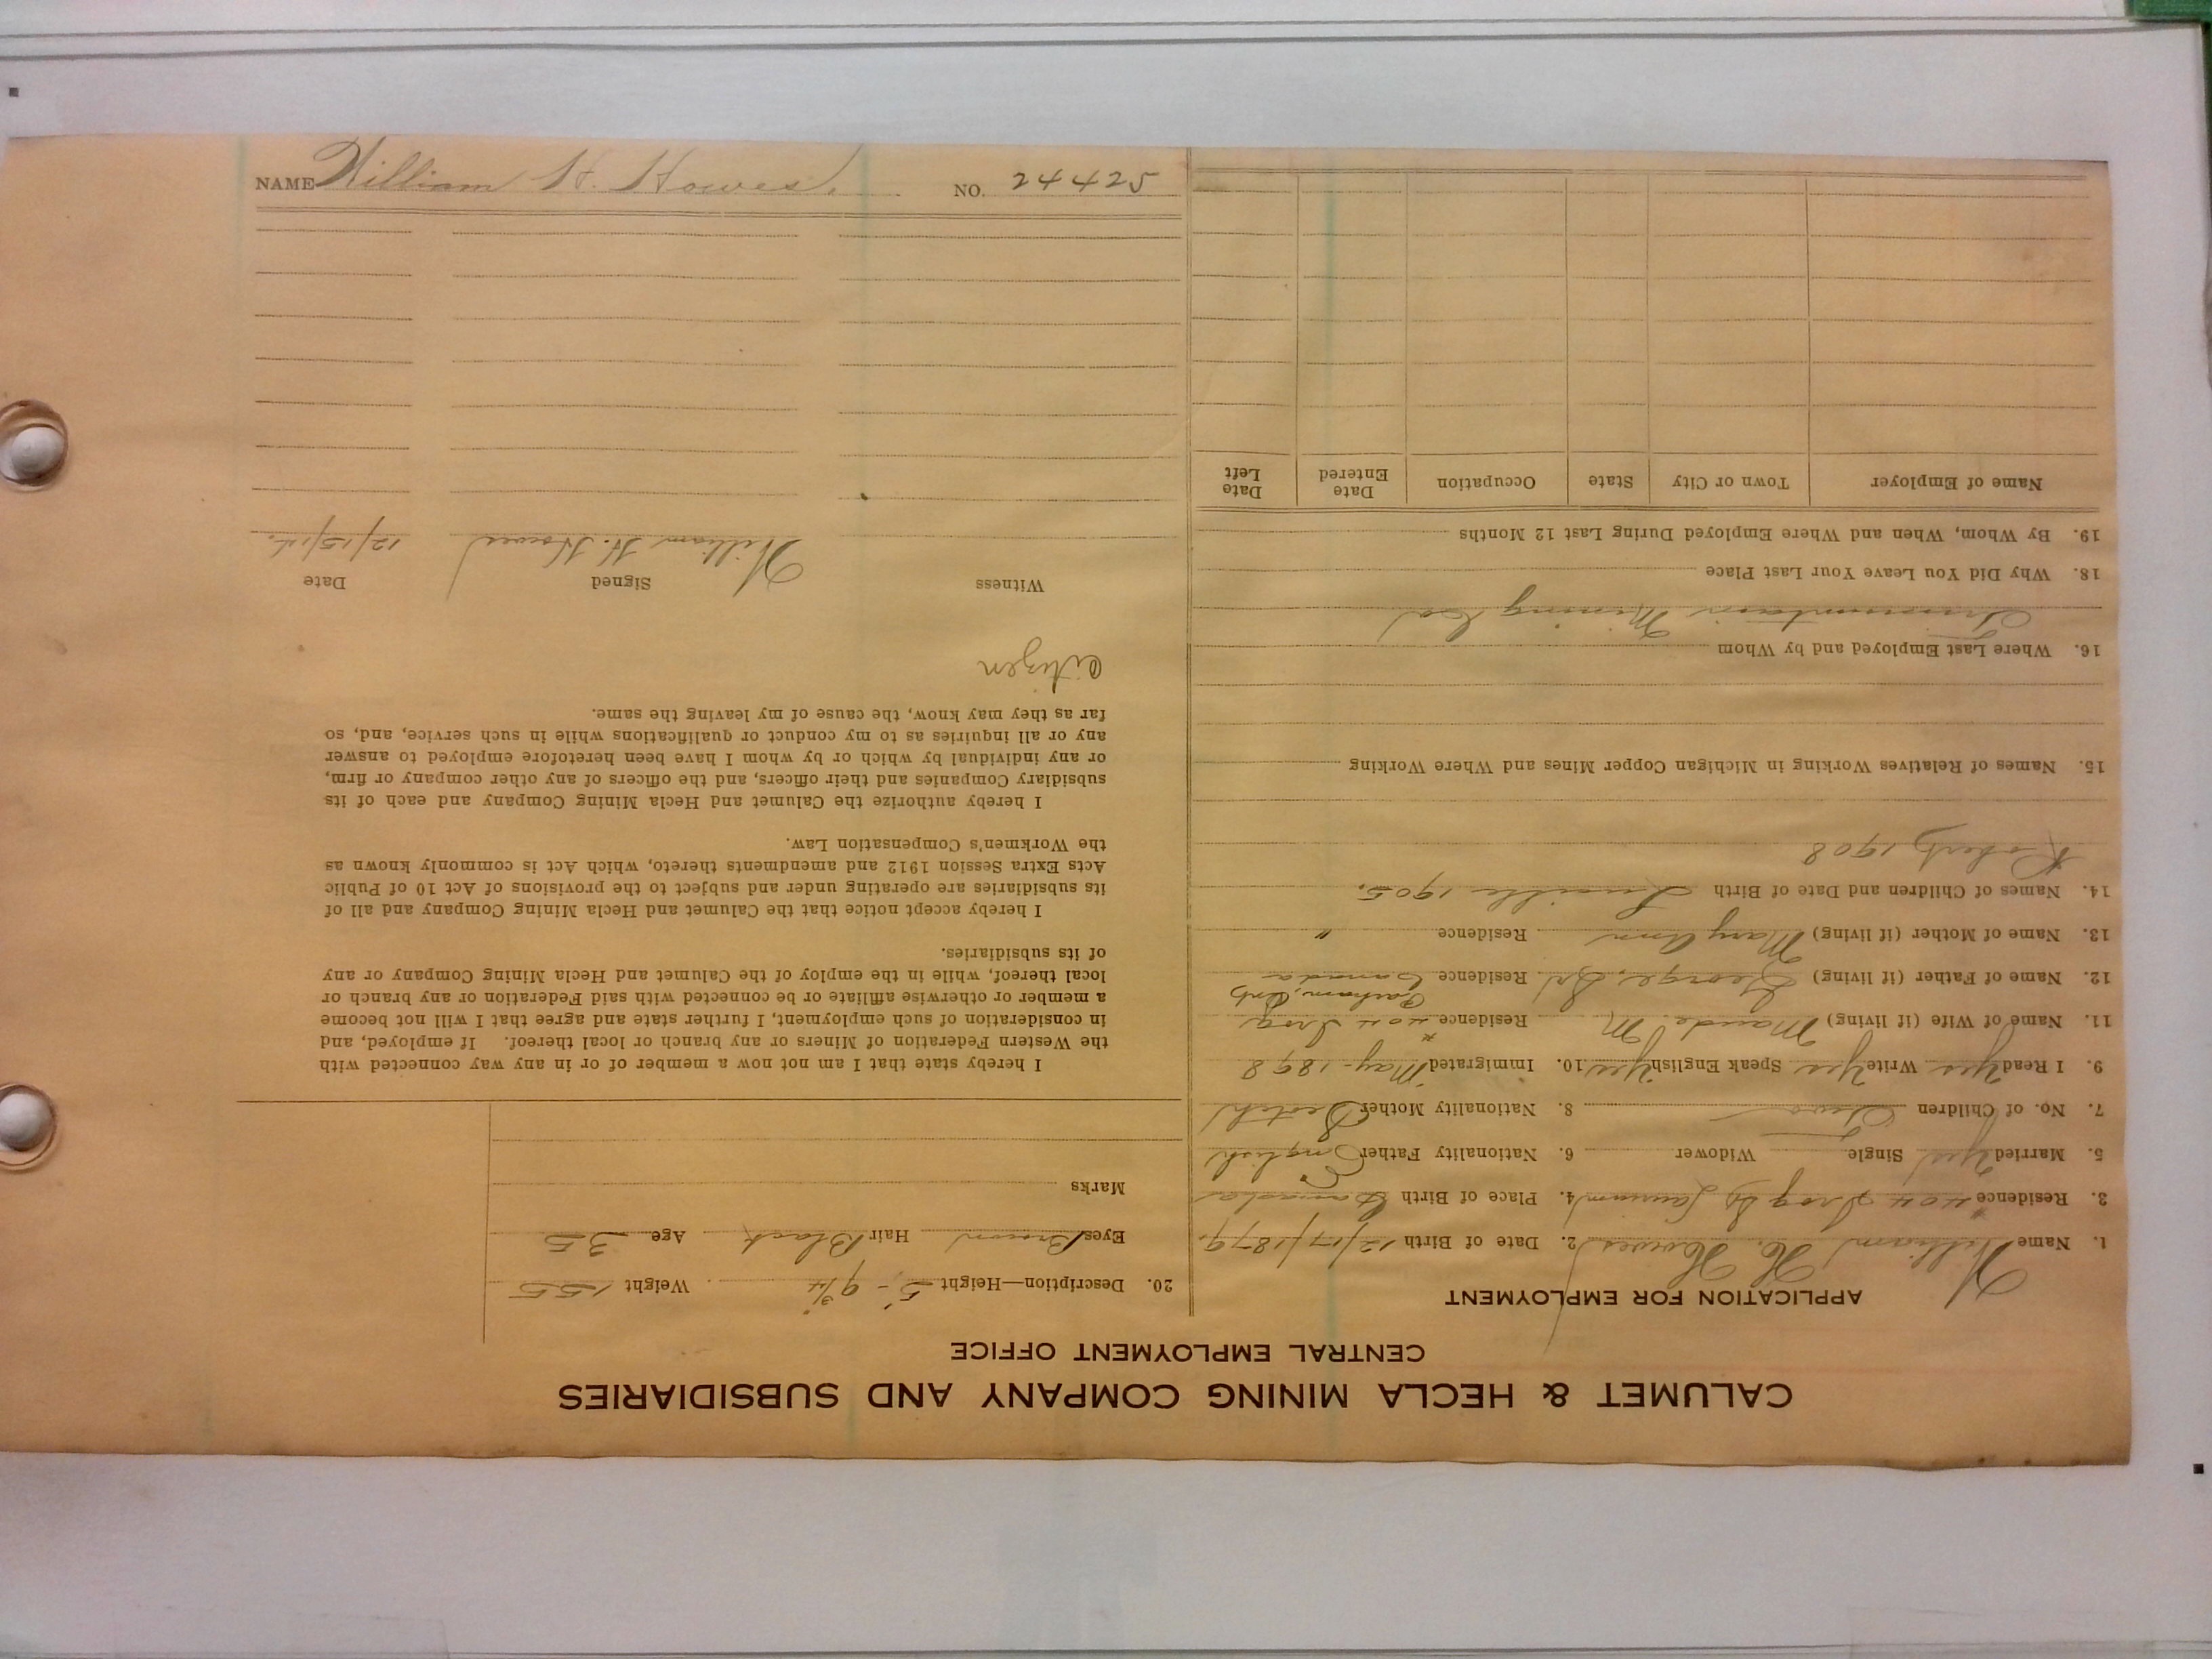 CALUMET & HECLA MINING COMPANY AND SUBSIDIARIES
CENTRAL EMPLOYMENT OFFICE
APPLICATION FOR EMPLOYMENT
1. Name William H. Howes 2. Date of Birth 12/17/1879.
3. Residence Laurium 4. Place of Birth Canada
5. Married Yes Single Widower 6. Nationality Father English
7. No. of Children Two 8. Nationality Mother Scotch
9. I Read Yes Write Yes Speak English Yes 10. Immigrated May-1898
11. Name of Wife (if living) Maude M Residence
12. Name of Father (if living) George, Sr Residence Canada
13. Name of Mother (if living) Mary Ann Residence "
14. Names of Children and Date of Birth Lucille 1905.
Robert, 1908
15. Names of Relatives Working in Michigan Copper Mines and Where Working
16. Where Last Employed and by Whom
Trimountain Mining Co
18. Why Did You Leave Your Last Place
19. By Whom, When and Where Employed During Last 12 Months
Name of Employer Town or City State Occupation Date Entered Date Left
20. Description—Height 5'-9 3/4" Weight 155
Eyes Brown Hair Black Age 35
Marks
I hereby state that I am not now a member of or in any way connected with
the Western Federation of Miners or any branch or local thereof. If employed, and
in consideration of such employment, I further state and agree that I will not become
a member or otherwise affiliate or be connected with said Federation or any branch or
local thereof, while in the employ of the Calumet and Hecla Mining Company or any
of its subsidiaries.
I hereby accept notice that the Calumet and Hecla Mining Company and all of
its subsidiaries are operating under and subject to the provisions of Act 10 of Public
Acts Extra Session 1912 and amendments thereto, which Act is commonly known as
the Workmen's Compensation Law.
I hereby authorize the Calumet and Hecla Mining Company and each of its
subsidiary Companies and their officers, and the officers of any other company or firm,
or any individual by which or by whom I have been heretofore employed to answer
any or all inquiries as to my conduct or qualifications while in such service, and, so
far as they may know, the cause of my leaving the same.
Citizen
Witness Signed Date
William H. Howes 12/15/14.
NAME William H. Howes. NO. 24425